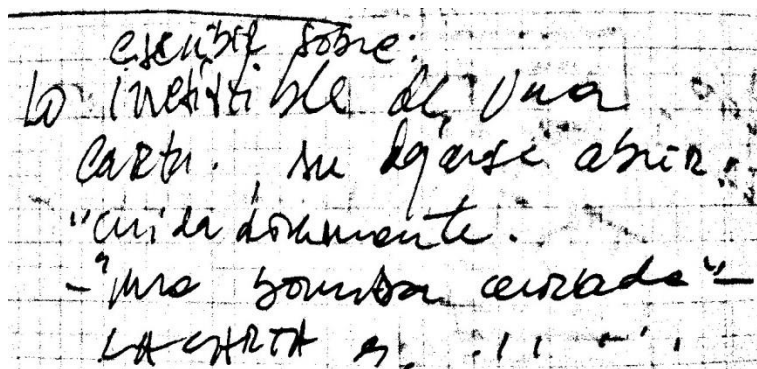 escribir sobre:
Lo irresistible de una
carta. su dejarse abrir.
"cuidadosamente.
-"una bomba cerrada"-
LA CARTA